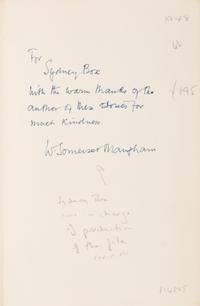 For
Sydney Box
With the warm thanks of the
author of these stories for
much kindness
W. Somerset Maugham
£195
Sydney Box
was in charge
of production
of the film